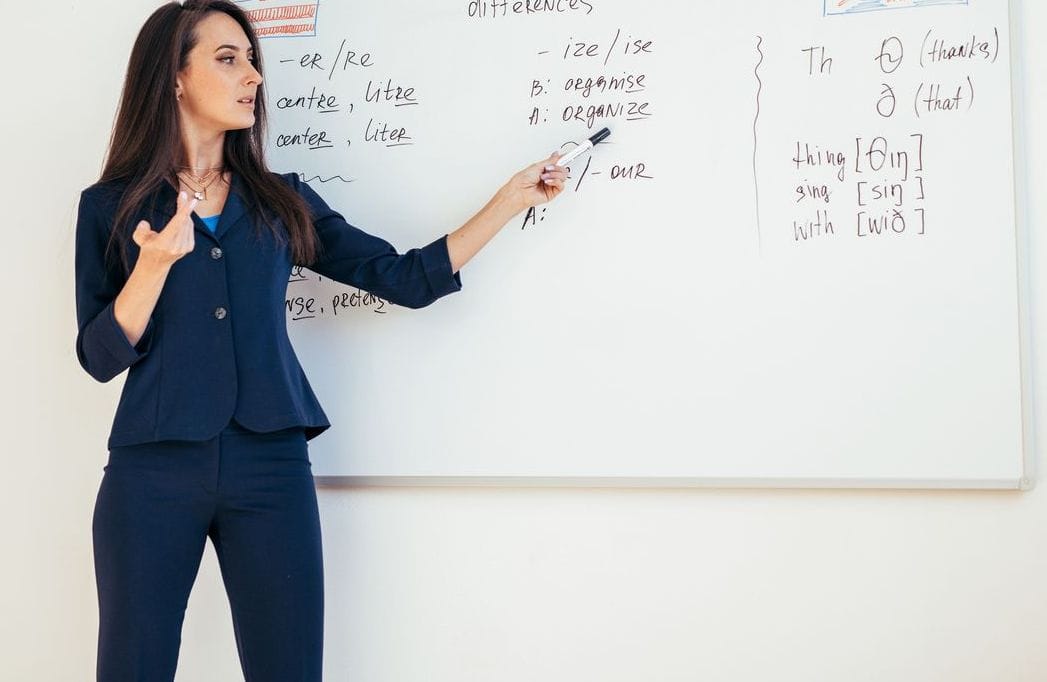 differences
-er/re
centre, litre
center, liter
-ize/ise
B: organise
A: organize
/-our
A:
pretens
Th θ (thanks)
ð (that)
thing [θiŋ]
sing [siŋ]
with [wið]